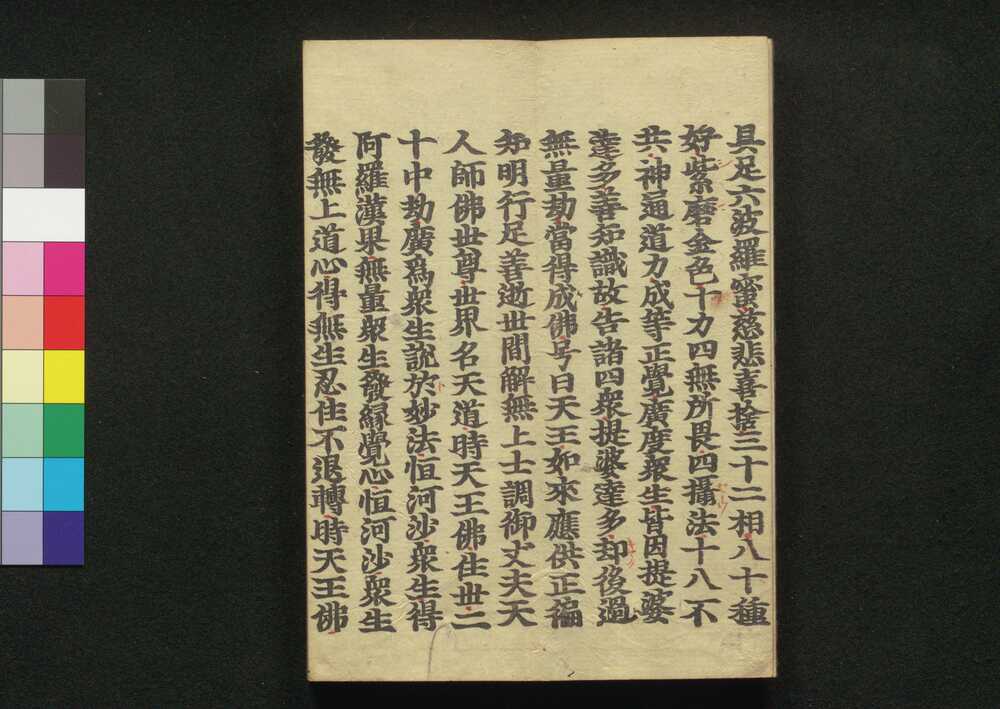 具足六波羅蜜慈悲喜捨三十二相八十種
好紫磨金色十力四無所畏四攝法十八不
共神通道力成等正覺廣度衆生皆因提婆
達多善知識故告諸四衆提婆達多却後過
無量劫當得成佛号曰天王如來應供正徧
知明行足善逝世間解無上士調御丈夫天
人師佛世尊世界名天道時天王佛住世二
十中劫廣爲衆生說於妙法恒河沙衆生得
阿羅漢果無量衆生發縁覺心恒河沙衆生
發無上道心得無生忍住不退轉時天王佛